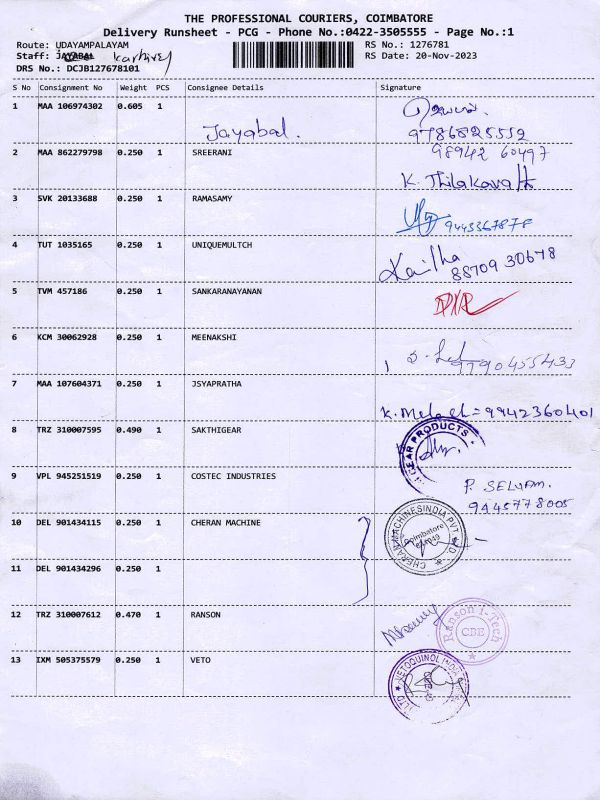 THE PROFESSIONAL COURIERS, COIMBATORE
Delivery Runsheet - PCG - Phone No.:0422-3505555 - Page No.:1
Route: UDAYAMPALAYAM RS No.: 1276781
Staff: JAYABAL RS Date: 20-Nov-2023
DRS No.: DCJB127678101
S No Consignment No Weight PCS Consignee Details Signature
1 MAA 106974302 0.605 1 Jayabal.
9786825552
2 MAA 862279798 0.250 1 SREERANI 98942 60497
K. Thilakavathi
3 SVK 20133688 0.250 1 RAMASAMY
9443367878
4 TUT 1035165 0.250 1 UNIQUEMULTCH Kavitha
88709 30678
5 TVM 457186 0.250 1 SANKARANAYANAN
6 KCM 30062928 0.250 1 MEENAKSHI
9790455433
7 MAA 107604371 0.250 1 JSYAPRATHA
9942360401
8 TRZ 310007595 0.490 1 SAKTHIGEAR GEAR PRODUCTS
9 VPL 945251519 0.250 1 COSTEC INDUSTRIES P. SELVAM.
9445778005
10 DEL 901434115 0.250 1 CHERAN MACHINE CHERAN MACHINES INDIA PVT LTD.
Coimbatore
11 DEL 901434296 0.250 1
12 TRZ 310007612 0.470 1 RANSON Ranson i-Tech
CBE
13 IXM 505375579 0.250 1 VETO VETOQUINOL INDIA